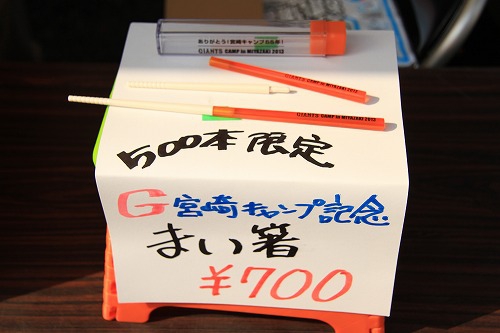 ありがとう!宮崎キャンプ55年!
GIANTS CAMP in MIYAZAKI 2013
GIANTS CAMP in MIYAZAKI 2013
GIANTS CAMP in MIYAZAKI 2013
500本限定
G宮崎キャンプ記念
まい箸
¥700